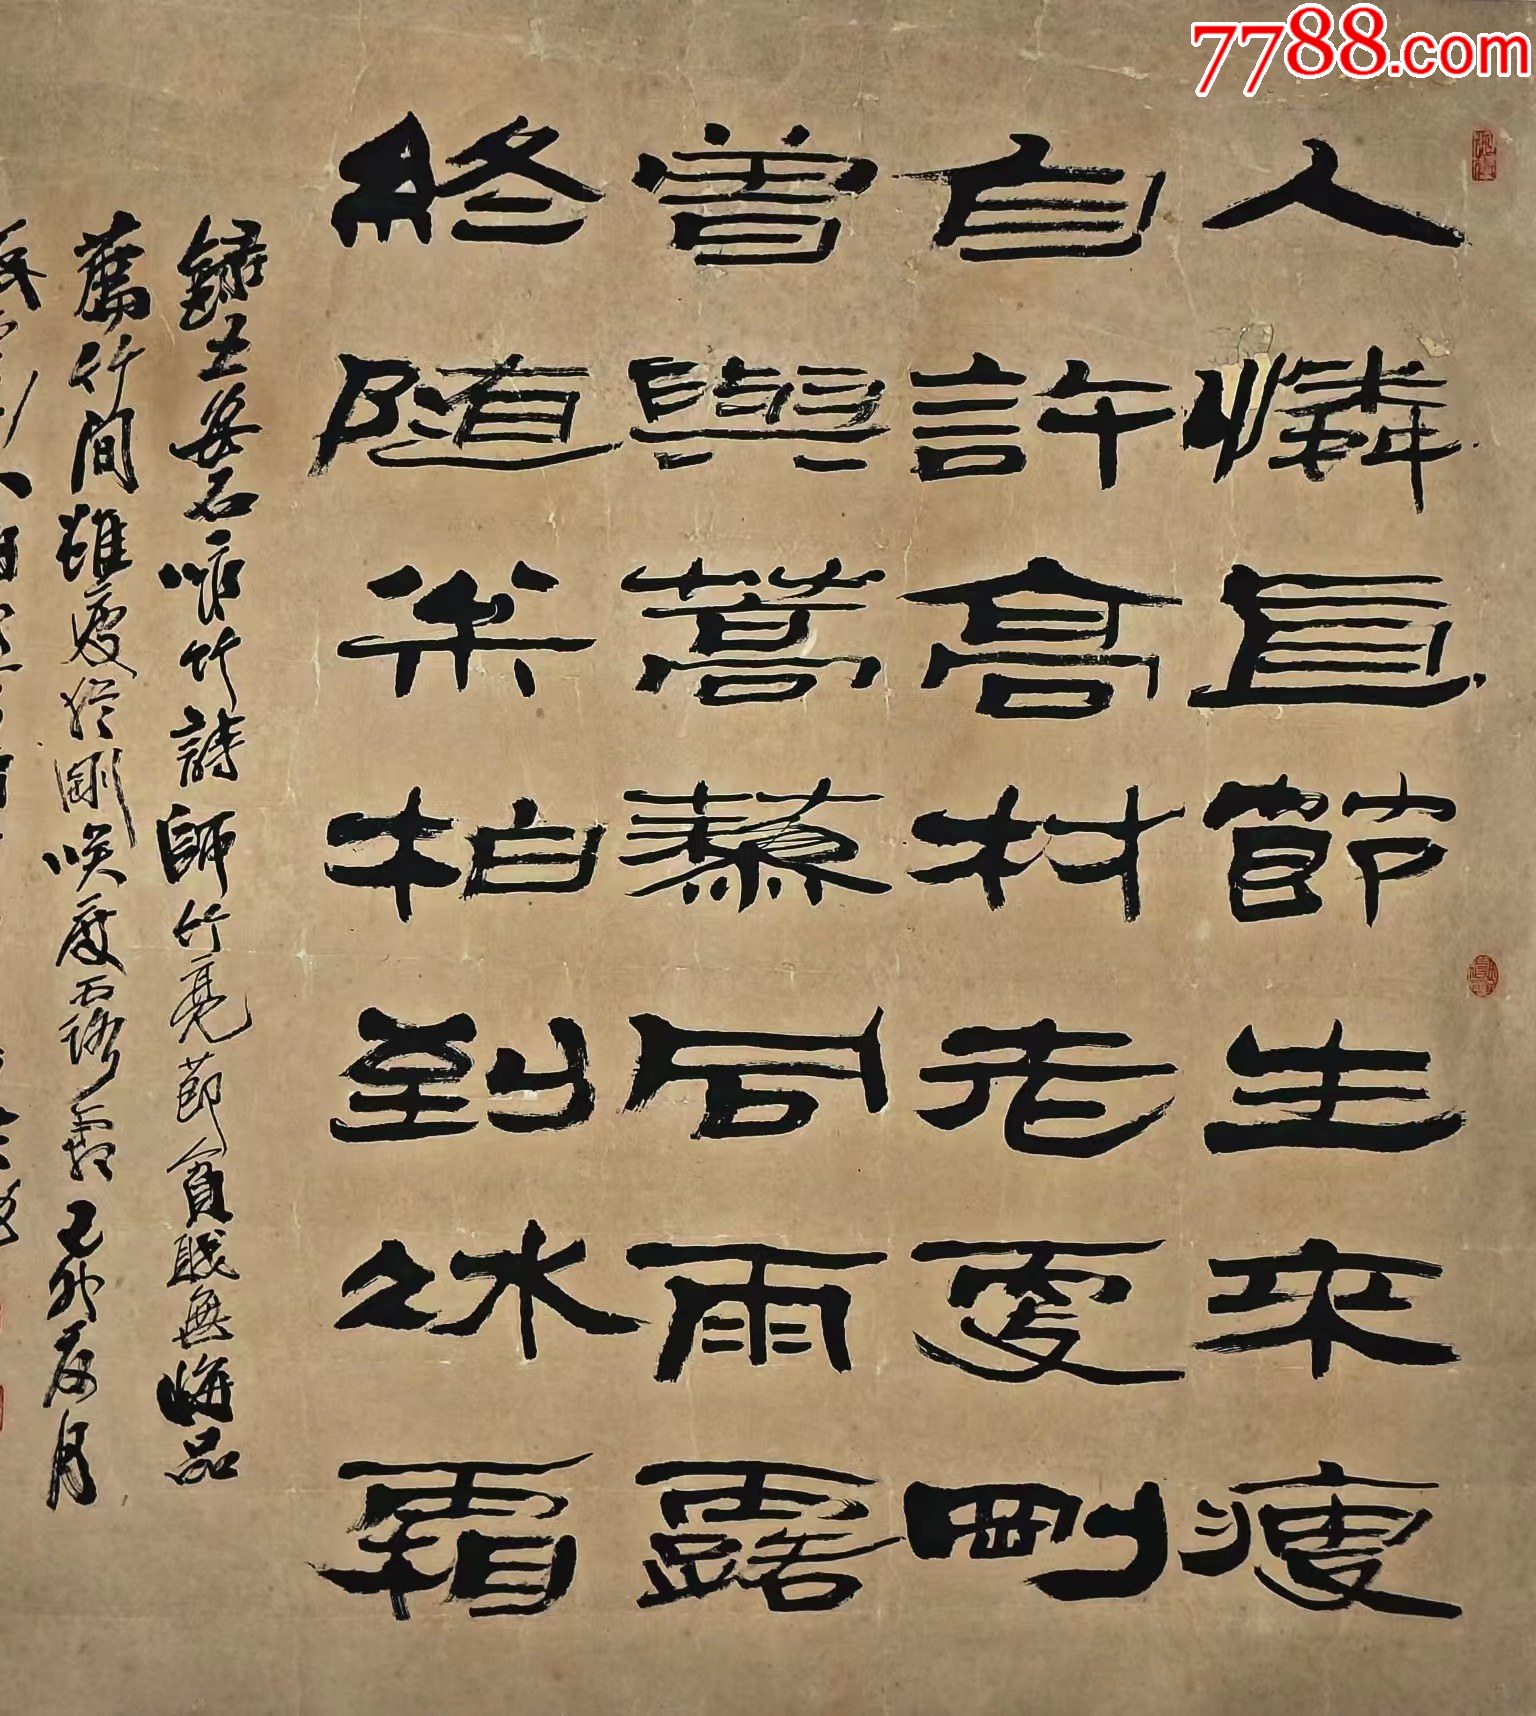 7788.com
人憐直節生來瘦
自許高材老更剛
曾與蒿藜同雨露
終随松柏到冰霜
錄王安石咏竹詩師竹亮節貧賤無悔品
篤竹間雖瘦終剛笑度雨露霜己卯夏月